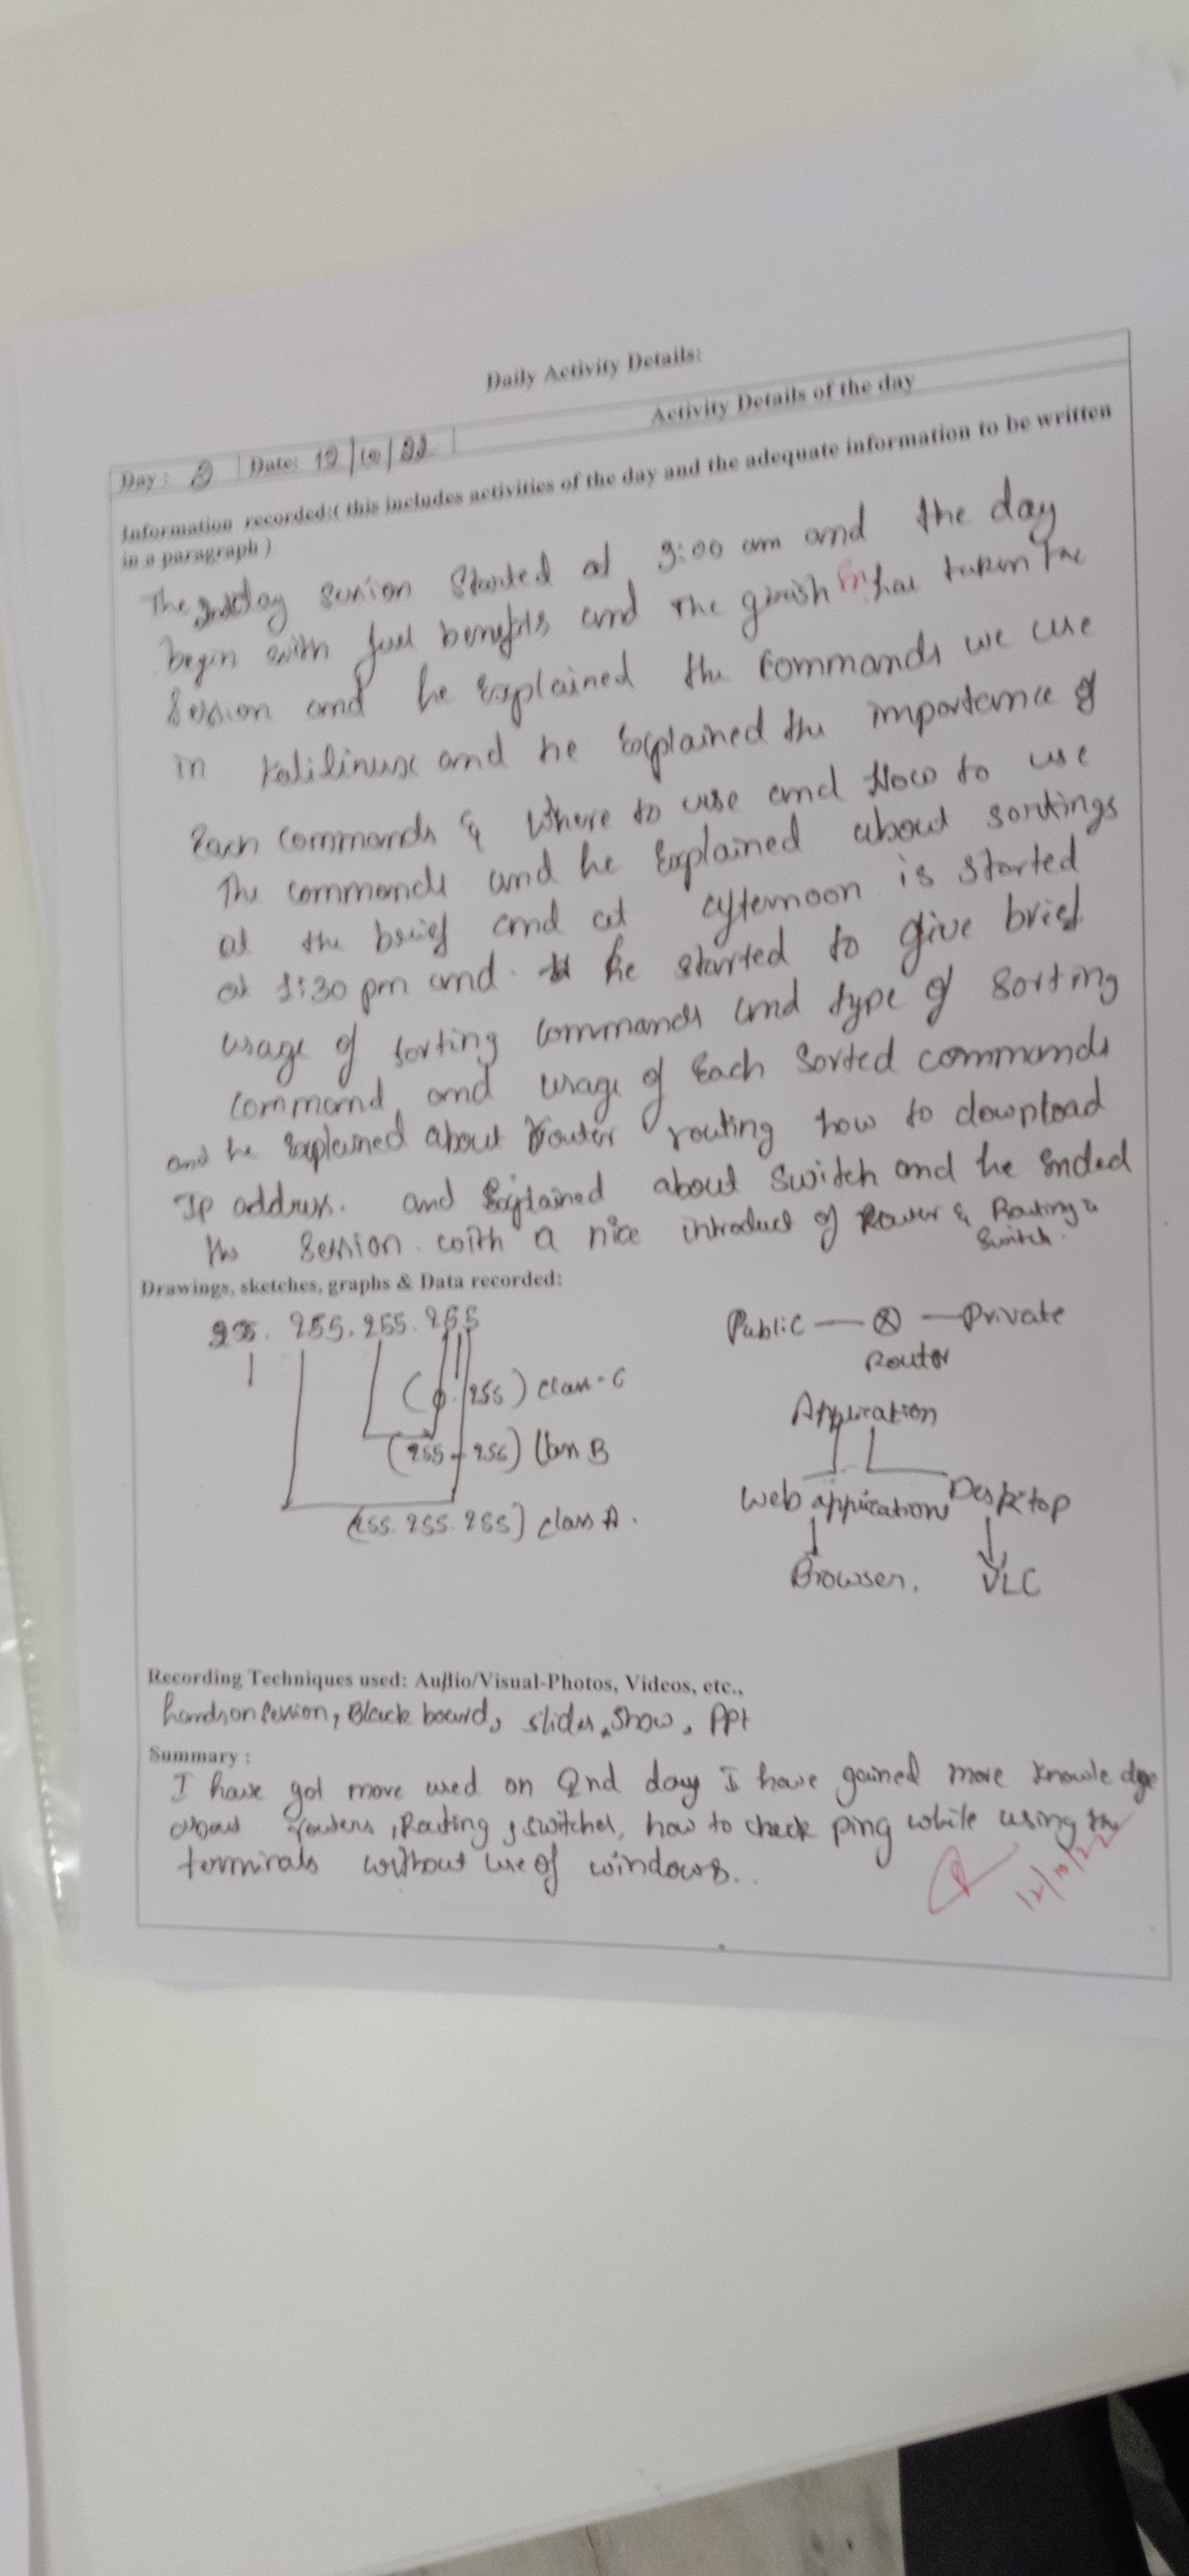 Daily Activity Details:
Day: 2 Date: 12/10/22 Activity Details of the day
Information recorded:( this includes activities of the day and the adequate information to be written
in a paragraph )
The session Started at 9:00 am and the day
begin with benefits and The has taken the
Session and he Explained the Commands we use
in Kalilinux and he Explained the importance of
Each Commands & Where to use and How to use
The commands and he Explained about sortings
at the brief and at afternoon is started
at 1:30 pm and he started to give brief
usage of sorting Commands and type of Sorting
Command and usage of Each Sorted commands
and he Explained about Router routing how to download
Ip address. and Explained about Switch and he Ended
the Session with a nice introduct of Router & Routing &
Switch.
Drawings, sketches, graphs & Data recorded:
255. 255. 255. 255
(0.255) class-C
(255-255) Class B
(255.255.255) class A.
Public — ⊗ — Private
Router
Application
Web application Desktop
Browser. VLC
Recording Techniques used: Audio/Visual-Photos, Videos, etc.,
handson session, Black board, slides, show, ppt
Summary :
I have got more used on 2nd day I have gained more knowledge
about routers, Routing, switches, how to check ping while using the
terminals without use of windows..
12/10/22